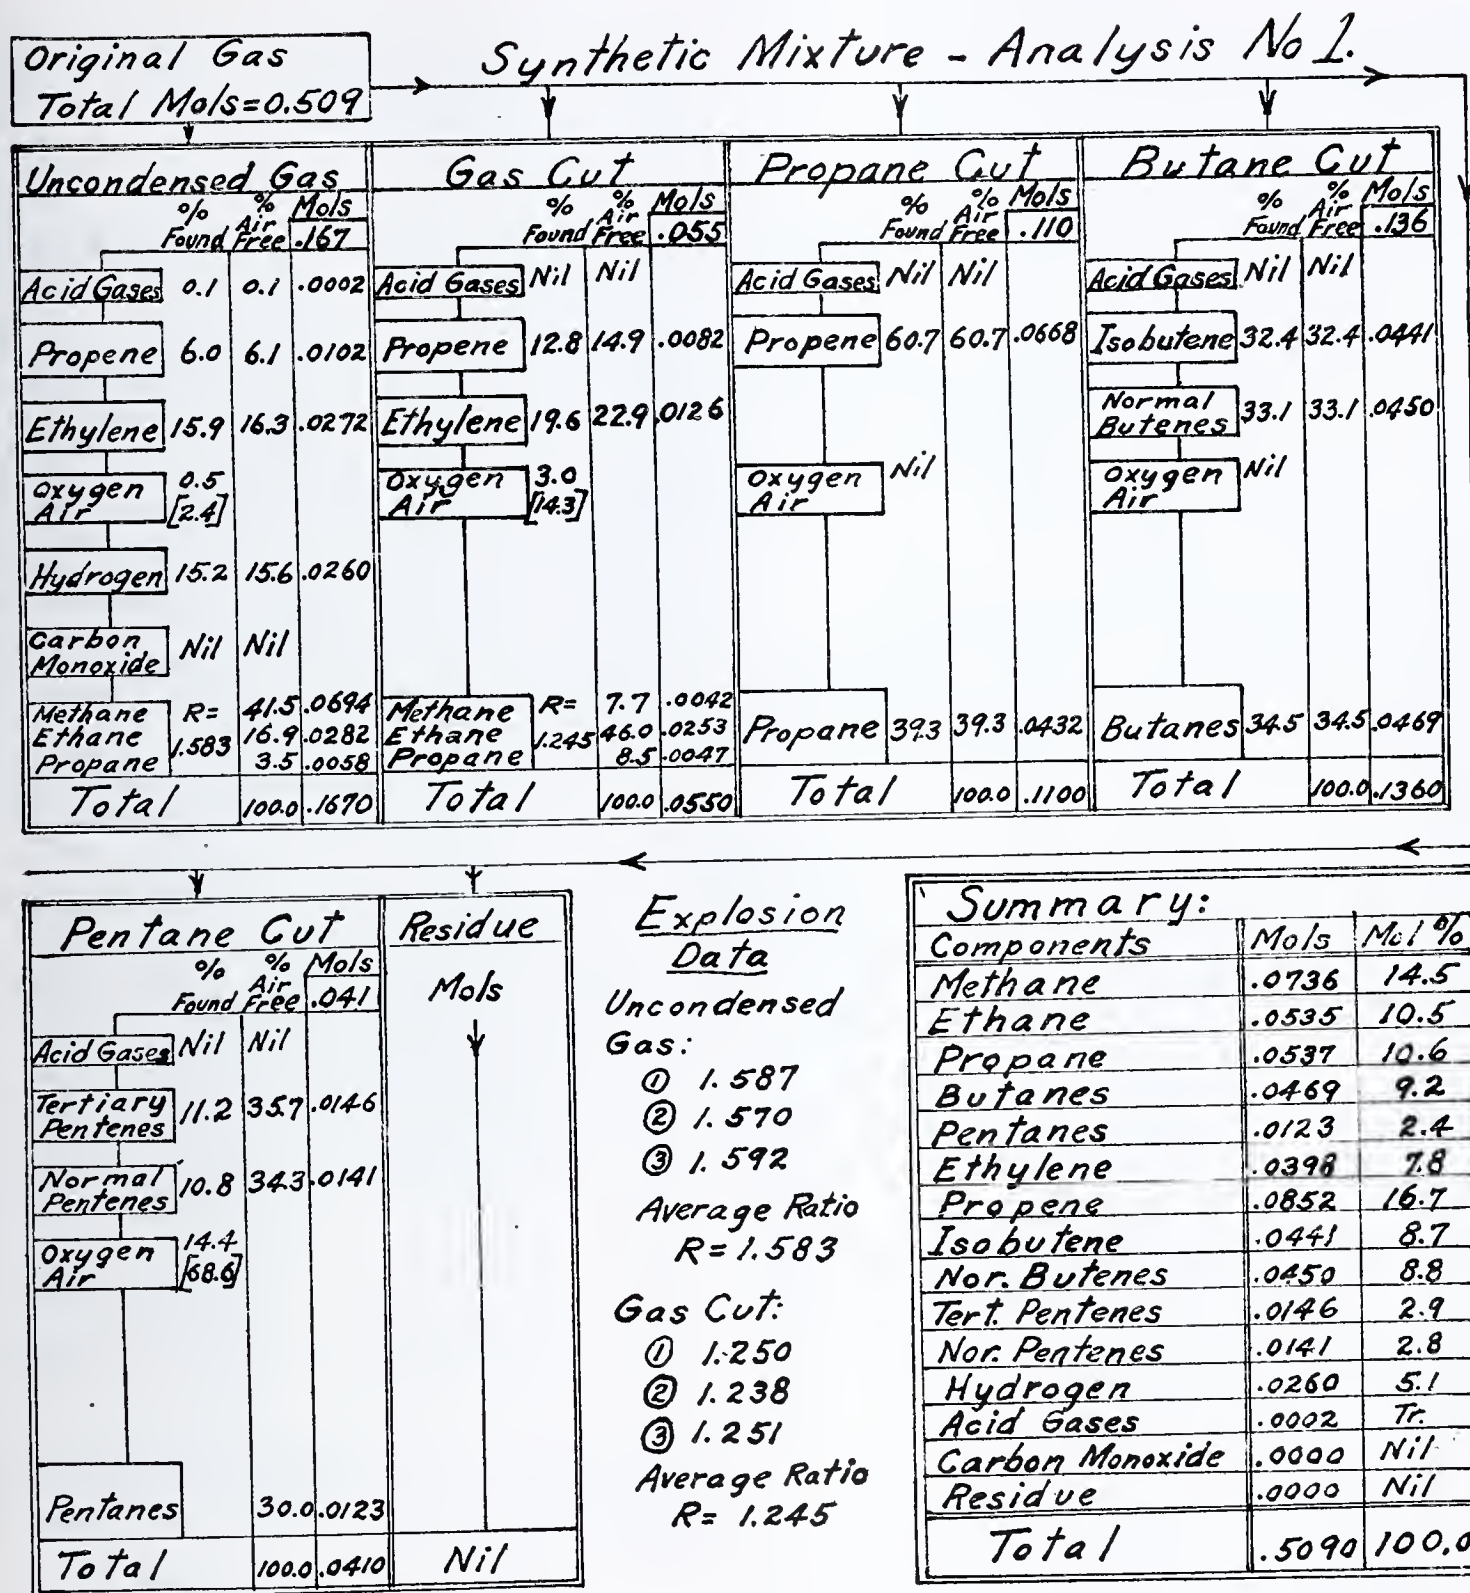 Original Gas
Total Mols=0.509
Synthetic Mixture - Analysis No 1.
Uncondensed Gas
% Found % Air Free Mols .167
Acid Gases 0.1 0.1 .0002
Propene 6.0 6.1 .0102
Ethylene 15.9 16.3 .0272
Oxygen 0.5
Air [2.4]
Hydrogen 15.2 15.6 .0260
Carbon Monoxide Nil Nil
Methane R= 41.5 .0694
Ethane 1.583 16.9 .0282
Propane 3.5 .0058
Total 100.0 .1670
Gas Cut
% Found % Air Free Mols .055
Acid Gases Nil Nil
Propene 12.8 14.9 .0082
Ethylene 19.6 22.9 .0126
Oxygen 3.0
Air [14.3]
Methane R= 7.7 .0042
Ethane 1.245 46.0 .0253
Propane 8.5 .0047
Total 100.0 .0550
Propane Cut
% Found % Air Free Mols .110
Acid Gases Nil Nil
Propene 60.7 60.7 .0668
Oxygen Nil
Air
Propane 39.3 39.3 .0432
Total 100.0 .1100
Butane Cut
% Found % Air Free Mols .136
Acid Gases Nil Nil
Isobutene 32.4 32.4 .0441
Normal Butenes 33.1 33.1 .0450
Oxygen Nil
Air
Butanes 34.5 34.5 .0469
Total 100.0 .1360
Pentane Cut
% Found % Air Free Mols .041
Acid Gases Nil Nil
Tertiary Pentenes 11.2 35.7 .0146
Normal Pentenes 10.8 34.3 .0141
Oxygen 14.4
Air [68.6]
Pentanes 30.0 .0123
Total 100.0 .0410
Residue
Mols
Nil
Explosion
Data
Uncondensed
Gas:
① 1.587
② 1.570
③ 1.592
Average Ratio
R= 1.583
Gas Cut:
① 1.250
② 1.238
③ 1.251
Average Ratio
R= 1.245
Summary:
Components Mols Mol %
Methane .0736 14.5
Ethane .0535 10.5
Propane .0537 10.6
Butanes .0469 9.2
Pentanes .0123 2.4
Ethylene .0398 7.8
Propene .0852 16.7
Isobutene .0441 8.7
Nor. Butenes .0450 8.8
Tert. Pentenes .0146 2.9
Nor. Pentenes .0141 2.8
Hydrogen .0260 5.1
Acid Gases .0002 Tr.
Carbon Monoxide .0000 Nil
Residue .0000 Nil
Total .5090 100.0